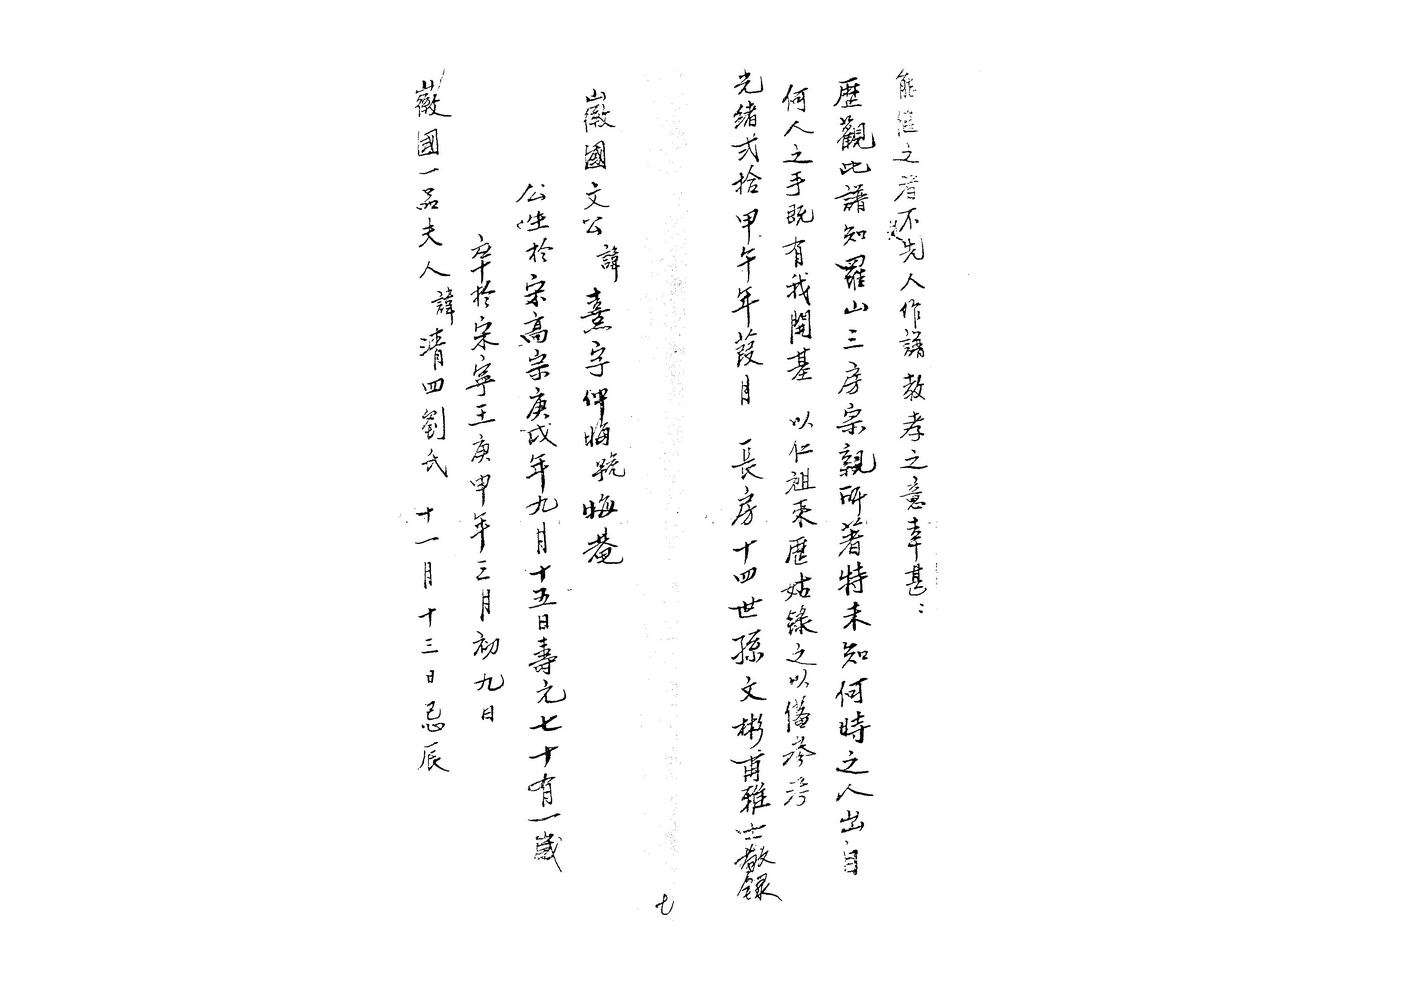 能繼之者不失先人作譜教孝之意幸甚：
歷觀此譜知羅山三房宗親所著特未知何時之人出自
何人之手既有我開基 以仁祖來歷姑錄之以俻叅考
光緒弍拾甲午年葭月 長房十四世孫文彬甫雅士敬録
七
徽國文公諱熹字仲晦號晦菴
公生於宋高宗庚戌年九月十五日壽元七十有一歲
卒於宋寧王庚申年三月初九日
徽國一品夫人諱清四劉氏 十一月十三日忌辰